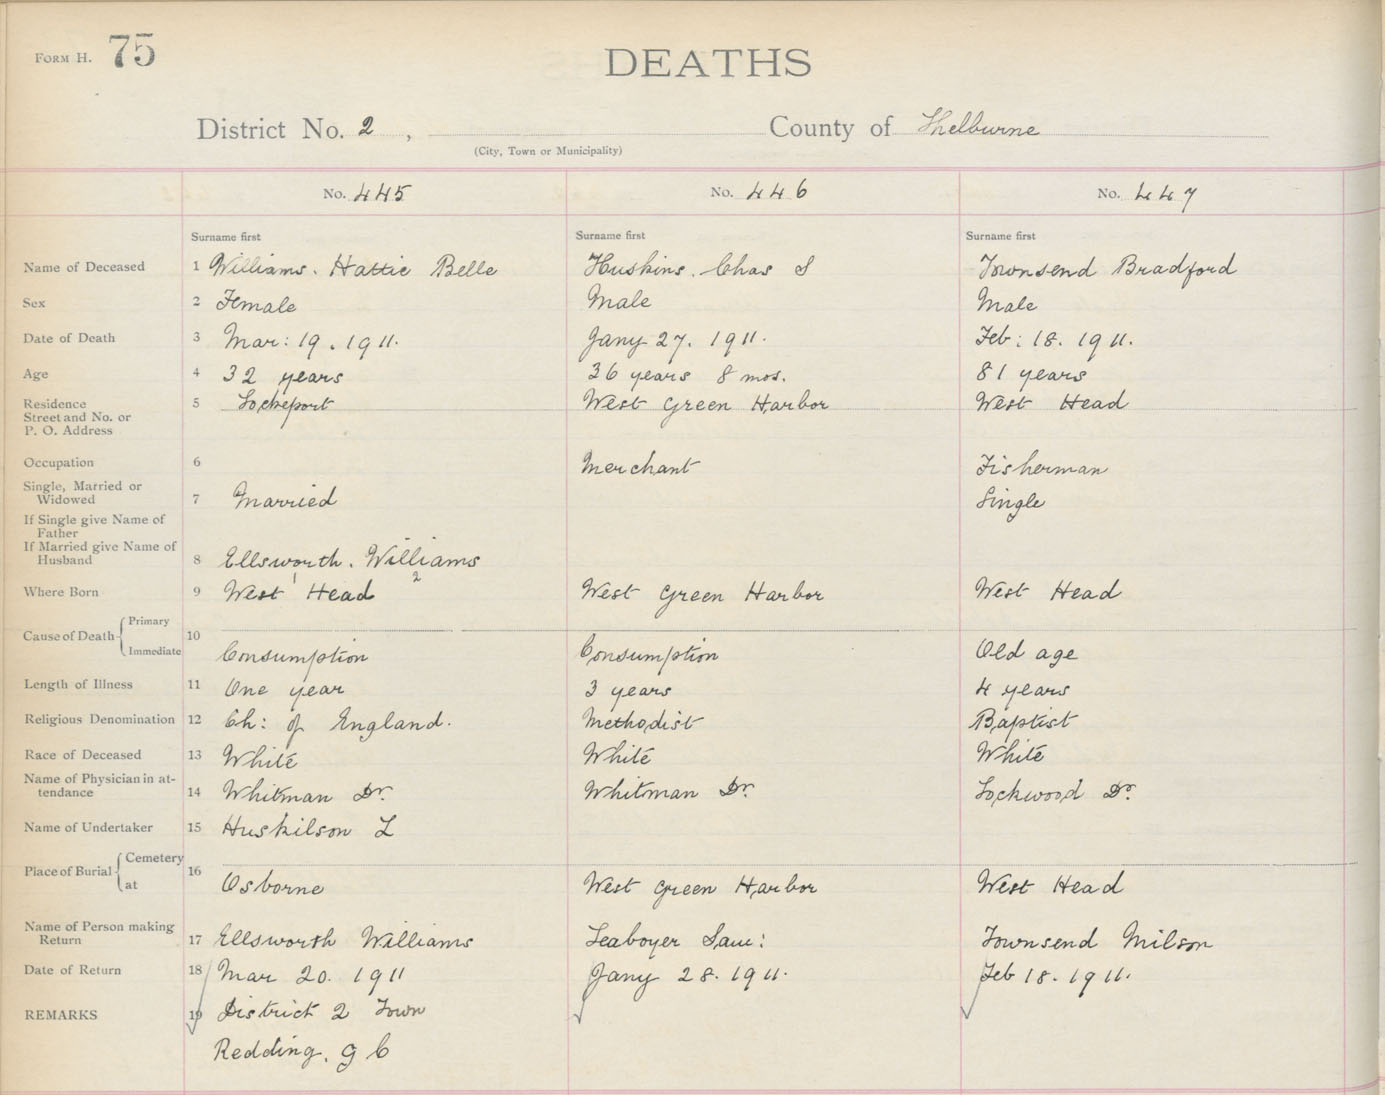 FORM H. 75
DEATHS
District No. 2 , County of Shelburne
(City, Town or Municipality)
No. 445 No. 446 No. 447
Surname first Surname first Surname first
Name of Deceased 1 Williams. Hattie Belle Huskins. Chas S Townsend Bradford
Sex 2 Female Male Male
Date of Death 3 Mar: 19. 1911. Jany 27. 1911. Feb: 18. 1911.
Age 4 32 years 36 years 8 mos. 81 years
Residence 5 Lockeport West Green Harbor West Head
Street and No. or
P. O. Address
Occupation 6 Merchant Fisherman
Single, Married or
Widowed 7 Married Single
If Single give Name of
Father
If Married give Name of
Husband 8 Ellsworth. Williams
1 2
Where Born 9 West Head West Green Harbor West Head
Cause of Death Primary
10
Immediate Consumption Consumption Old age
Length of Illness 11 One year 3 years 4 years
Religious Denomination 12 Ch: of England. Methodist Baptist
Race of Deceased 13 White White White
Name of Physician in at-
tendance 14 Whitman Dr. Whitman Dr. Lockwood Dr.
Name of Undertaker 15 Huskilson L
Place of Burial Cemetery
16
at Osborne West Green Harbor West Head
Name of Person making
Return 17 Ellsworth Williams Seaboyer Saml: Townsend Milson
Date of Return 18 Mar 20. 1911 Jany 28. 1911. Feb 18. 1911.
REMARKS 19 District 2 Town
Redding. G C